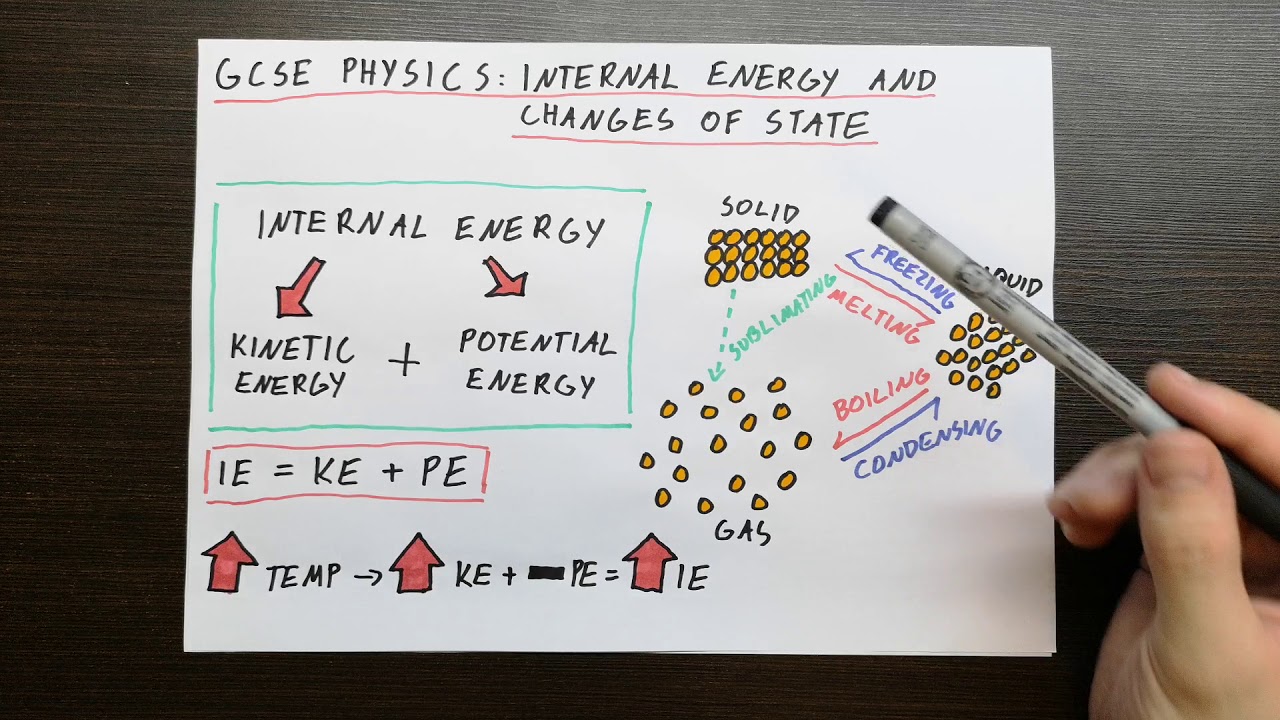 GCSE PHYSICS: INTERNAL ENERGY AND
CHANGES OF STATE
INTERNAL ENERGY
KINETIC
ENERGY
+
POTENTIAL
ENERGY
IE = KE + PE
TEMP → KE + PE = IE
SOLID
FREEZING
MELTING
SUBLIMATING
BOILING
CONDENSING
GAS